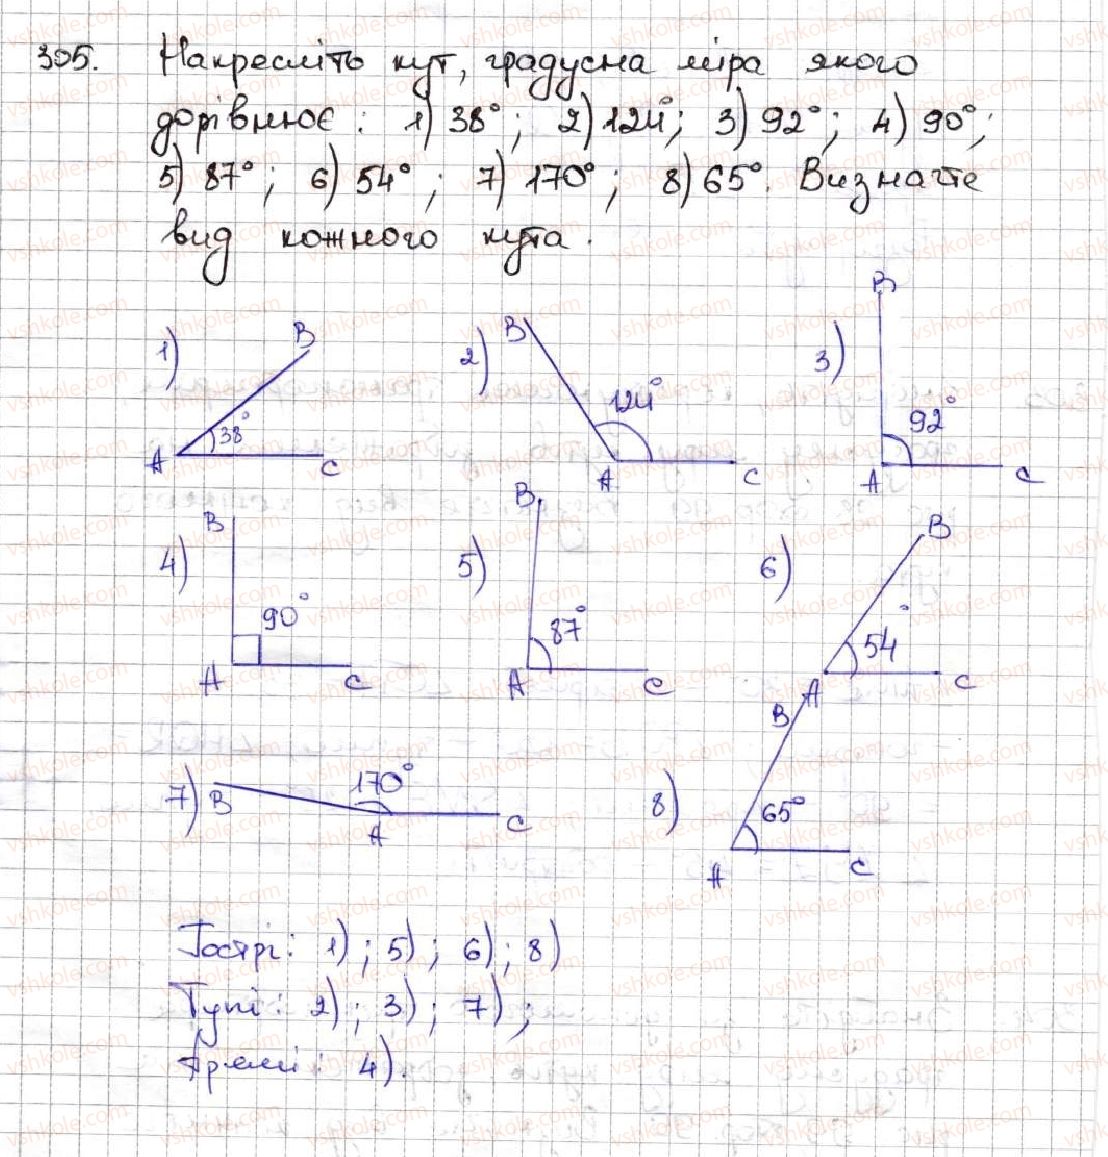 305. Накресліть кут, градусна міра якого
дорівнює: 1) 38°; 2) 124°; 3) 92°; 4) 90°;
5) 87°; 6) 54°; 7) 170°; 8) 65°. Визначте
вид кожного кута.
1) B 38° A C
2) B 124° A C
3) B 92° A C
4) B 90° A C
5) B 87° A C
6) B 54° A C
7) B 170° A C
8) B 65° A C
Гострі: 1); 5); 6); 8)
Тупі: 2); 3); 7);
Прямі: 4).
vshkole.com